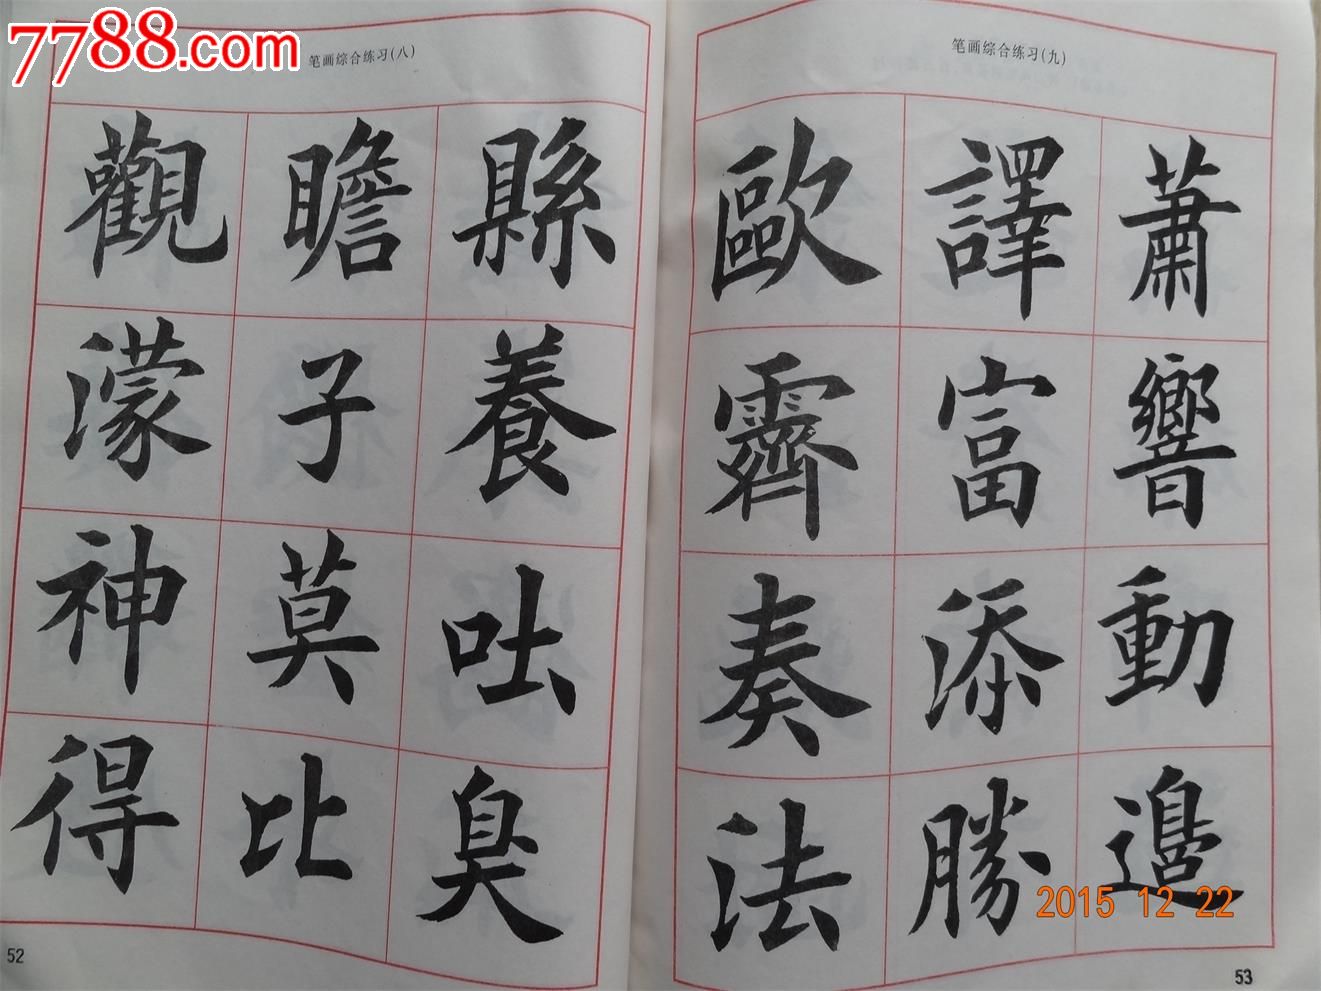 7788.com
笔画综合练习(八)
觀瞻縣
濛子養
神莫吐
得比臭
52
笔画综合练习(九)
歐譯蕭
霽富響
奏添動
法勝邊
2015 12 22
53